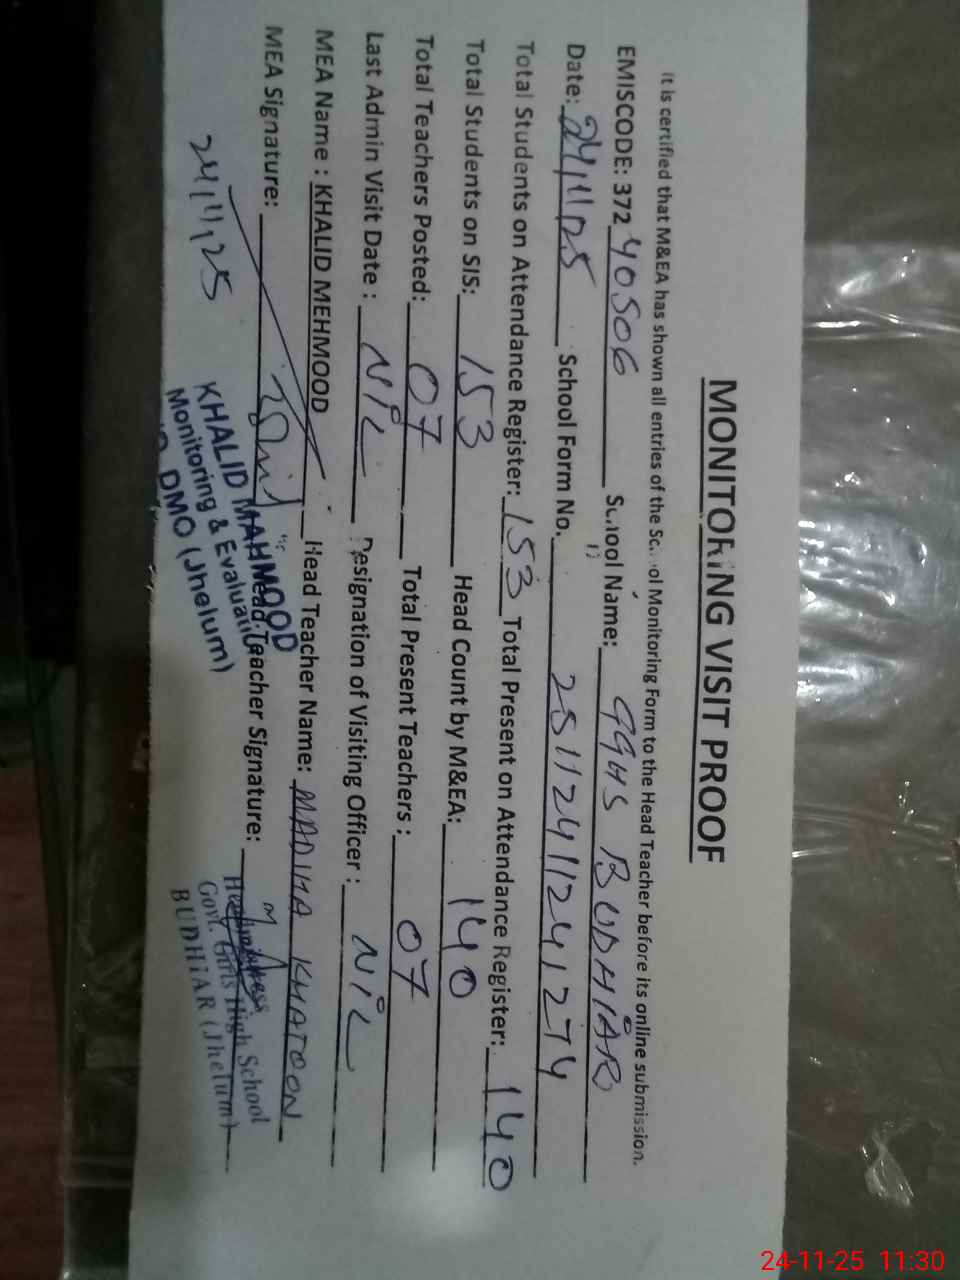 MONITORING VISIT PROOF
It is certified that M&EA has shown all entries of the School Monitoring Form to the Head Teacher before its online submission.
EMISCODE: 37240506 School Name: GGHS BUDHIAR
Date: 24/11/25 School Form No. 25112411241274
Total Students on Attendance Register: 153 Total Present on Attendance Register: 140
Total Students on SIS: 153 Head Count by M&EA: 140
Total Teachers Posted: 07 Total Present Teachers: 07
Last Admin Visit Date: NIL Designation of Visiting Officer: NIL
MEA Name: KHALID MEHMOOD Head Teacher Name: MADIHA KHATOON
MEA Signature: Head Teacher Signature:
24/11/25
KHALID MAHMOOD
Monitoring & Evaluation
DMO (Jhelum)
Headmistress
Govt. Girls High School
BUDHiAR (Jhelum)
24-11-25 11:30